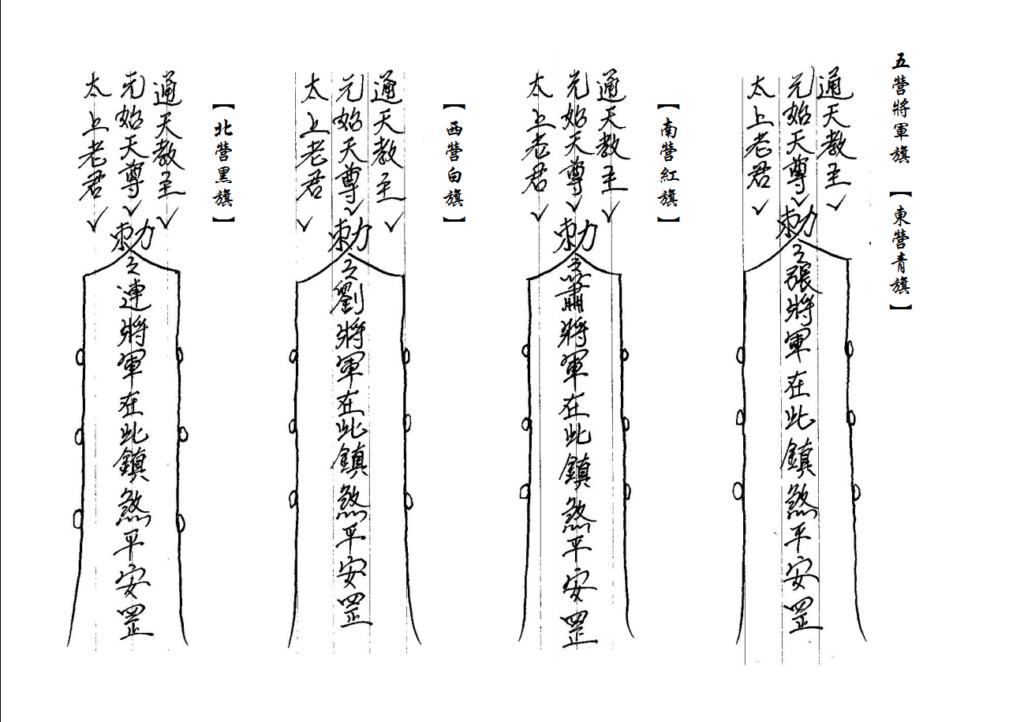 五營將軍旗 【東營青旗】
通天教主
元始天尊
太上老君
勅令張將軍在此鎮煞平安罡
【南營紅旗】
通天教主
元始天尊
太上老君
勅令蕭將軍在此鎮煞平安罡
【西營白旗】
通天教主
元始天尊
太上老君
勅令劉將軍在此鎮煞平安罡
【北營黑旗】
通天教主
元始天尊
太上老君
勅令連將軍在此鎮煞平安罡